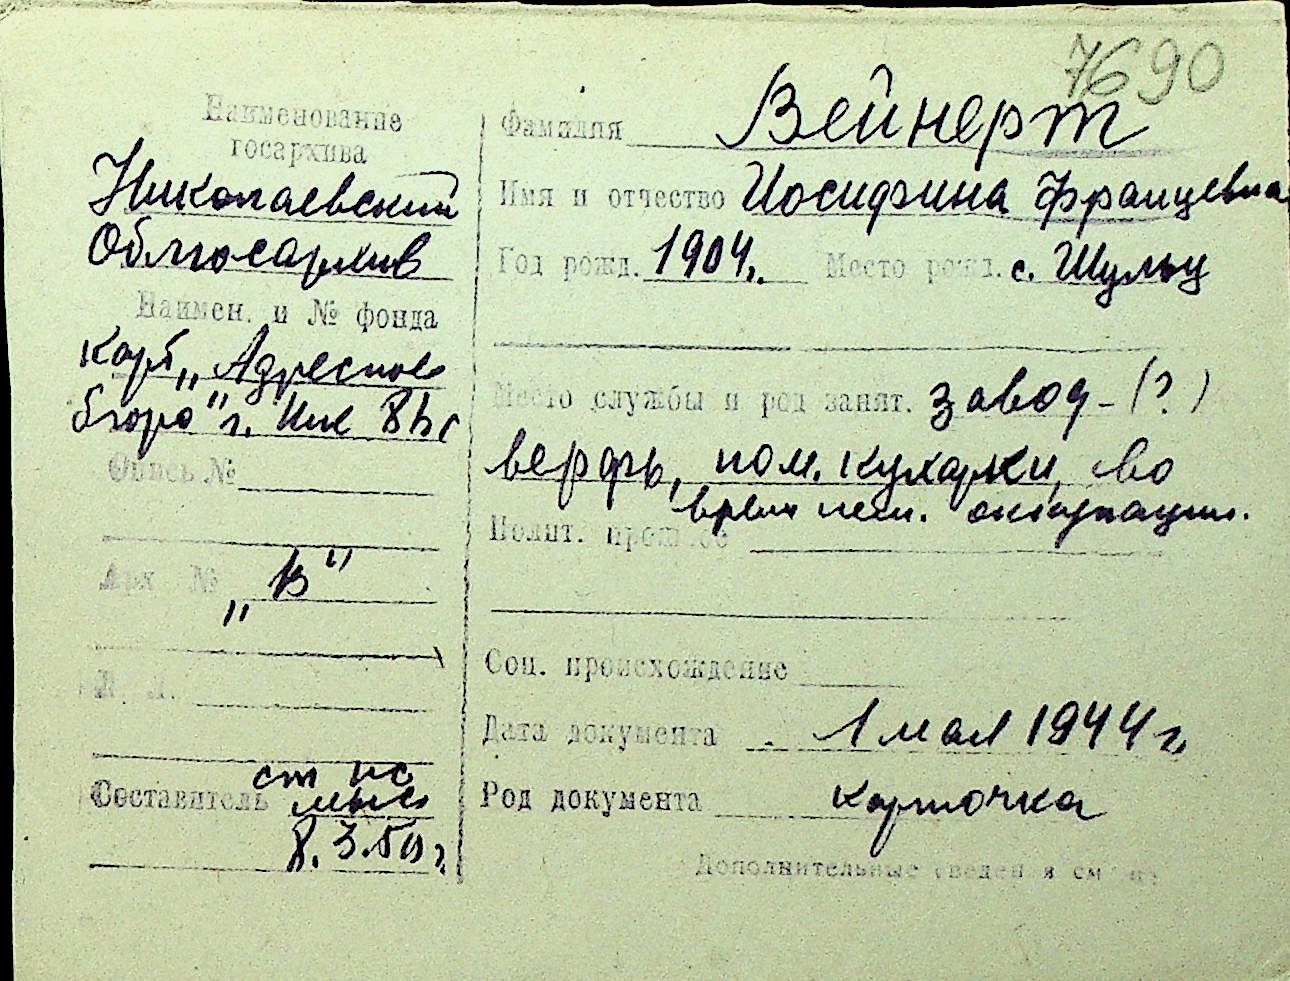 7690
Наименование
госархива
Николаевский
Облгосархив
Наимен. и № фонда
карт. „Адресное
бюро" г. Ник
Опись №
Арх. №
„В"
Л. Л.
Составитель
8.3.50 г.
Фамилия Вейнерт
Имя и отчество Иосифина Францевна
Год рожд. 1904 г. Место рожд. с. Шульц
Место службы и род занят. завод - (?)
верфь, пом. кухарки, во
время нем. оккупации.
Полит. прошлое
Соц. происхождение
Дата документа 1 мая 1944 г.
Род документа карточка
Дополнительные сведения см